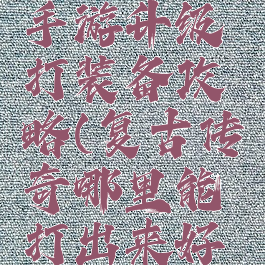 手游升级
打装备攻
略(复古传
奇哪里能
打出来好